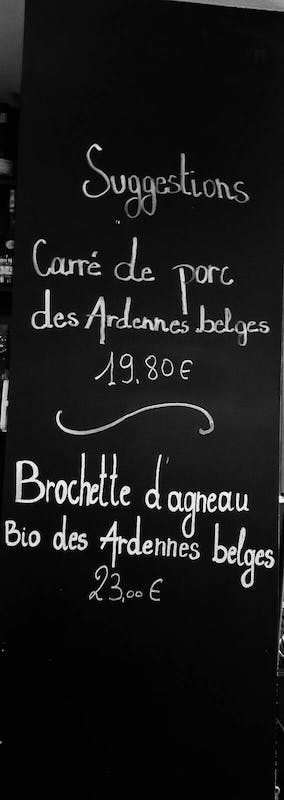 Suggestions
Carré de porc
des Ardennes belges
19,80€
Brochette d'agneau
Bio des Ardennes belges
23,00 €